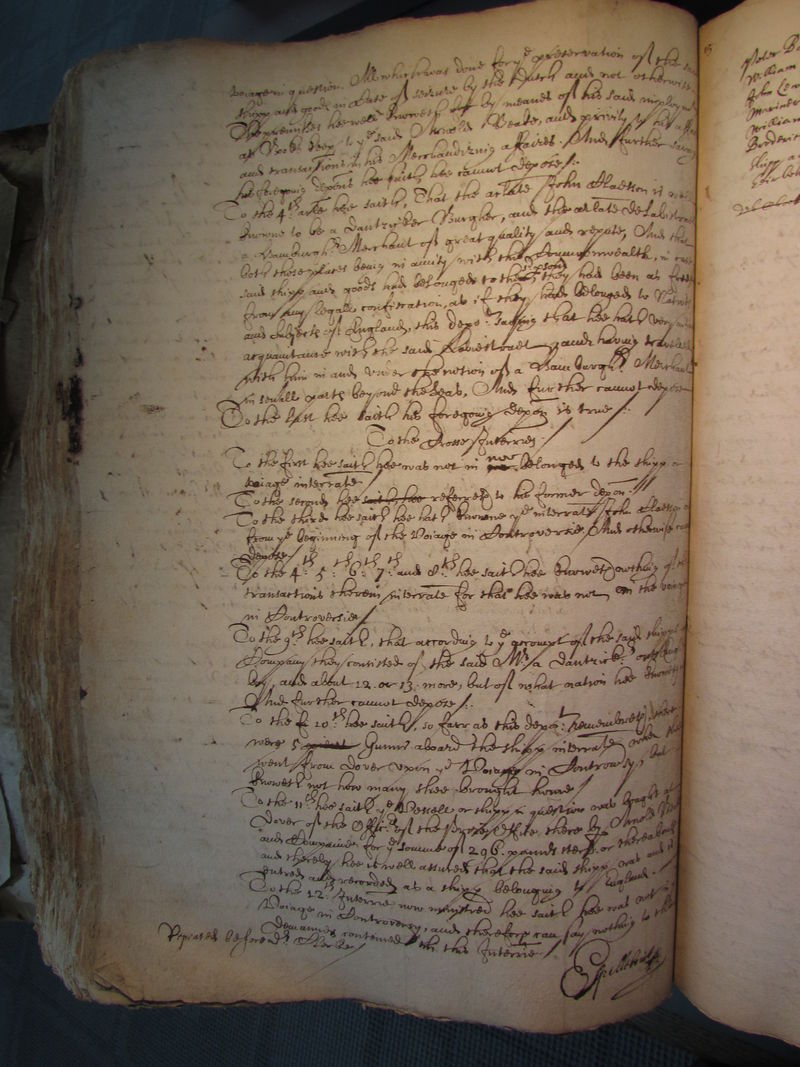 voiage in question. All which was done for ye preservation of the said
shipp and goods in Case of seizure by the Dutch and not otherwise
The premisses hee well knoweth by meanes of his said imployment
as Booke keeper to ye said Arnold Beake, and privity to the affaires
and transactions in his Merchandizing affaires. And further saving
his foregoing deposition hee saith hee cannot depose /.
To the 4th. arle hee saith, That the arlate John Claeson is well
knowne to be a Dantzicker Burgher, and the arlate
a Hamburgh Merchant of great quality and repute, And that
both those places being in amity with this Commonwealth, in case
said shipp and goods had belonged to them they had been as free
from any legall confiscation, as if they had belonged to Natives
and Subjects of England, this depot. saying that hee hath very good
acquaintance with the said and having travelled
with him in and under the notion of a Hamburgh Merchant
in severall parts beyond the Seas, And further cannot depose
To the last hee saith his foregoing depon is true /.
To the Crosse Interries.
To the first hee saith hee was not in nor belonged to the shipp or
voiage interrate
To the second hee saith hee referreth to his former depon.
To the third hee saith hee hath knowne ye interrate John Claeson
from ye beginning of the Voiage in Controversie, And otherwise cannot
depose /
To the 4th. 5th. 6th. 7th. and 8th. hee saith hee knoweth nothing of the
transactions therein interrate for that hee was not on the voiage
in Controversie /
To the 9th. hee saith, that according to ye accompt of the said shipps
Company they consisted of the said Mr. a Dantzicker
boy, and about 12. or 13. more, but of what nation hee knoweth
And further cannot depose /.
To the 10th. hee saith, so farr as this depont. remembreth, there
were 5 Gunns aboard the shipp interrate when shee
went from Dover upon ye Voiage in Controversy, but
knoweth not how many shee brought home /
To the 11th. hee saith ye Vessell or shipp in question was bought at
Dover of the Officrs. of the Prize Office there by Arnold Beake
and Companie for ye somme of 296. pounds sterl. or thereabouts
and thereby hee is well assured that the said shipp was and is
entred and recorded as a shipp belonging to England.
To the 12th. Interrie now ministred hee saith hee was not in ye
Voiage in Controversy, and therefore can say nothing to the
demannds contened in this Interrie
Repeated before